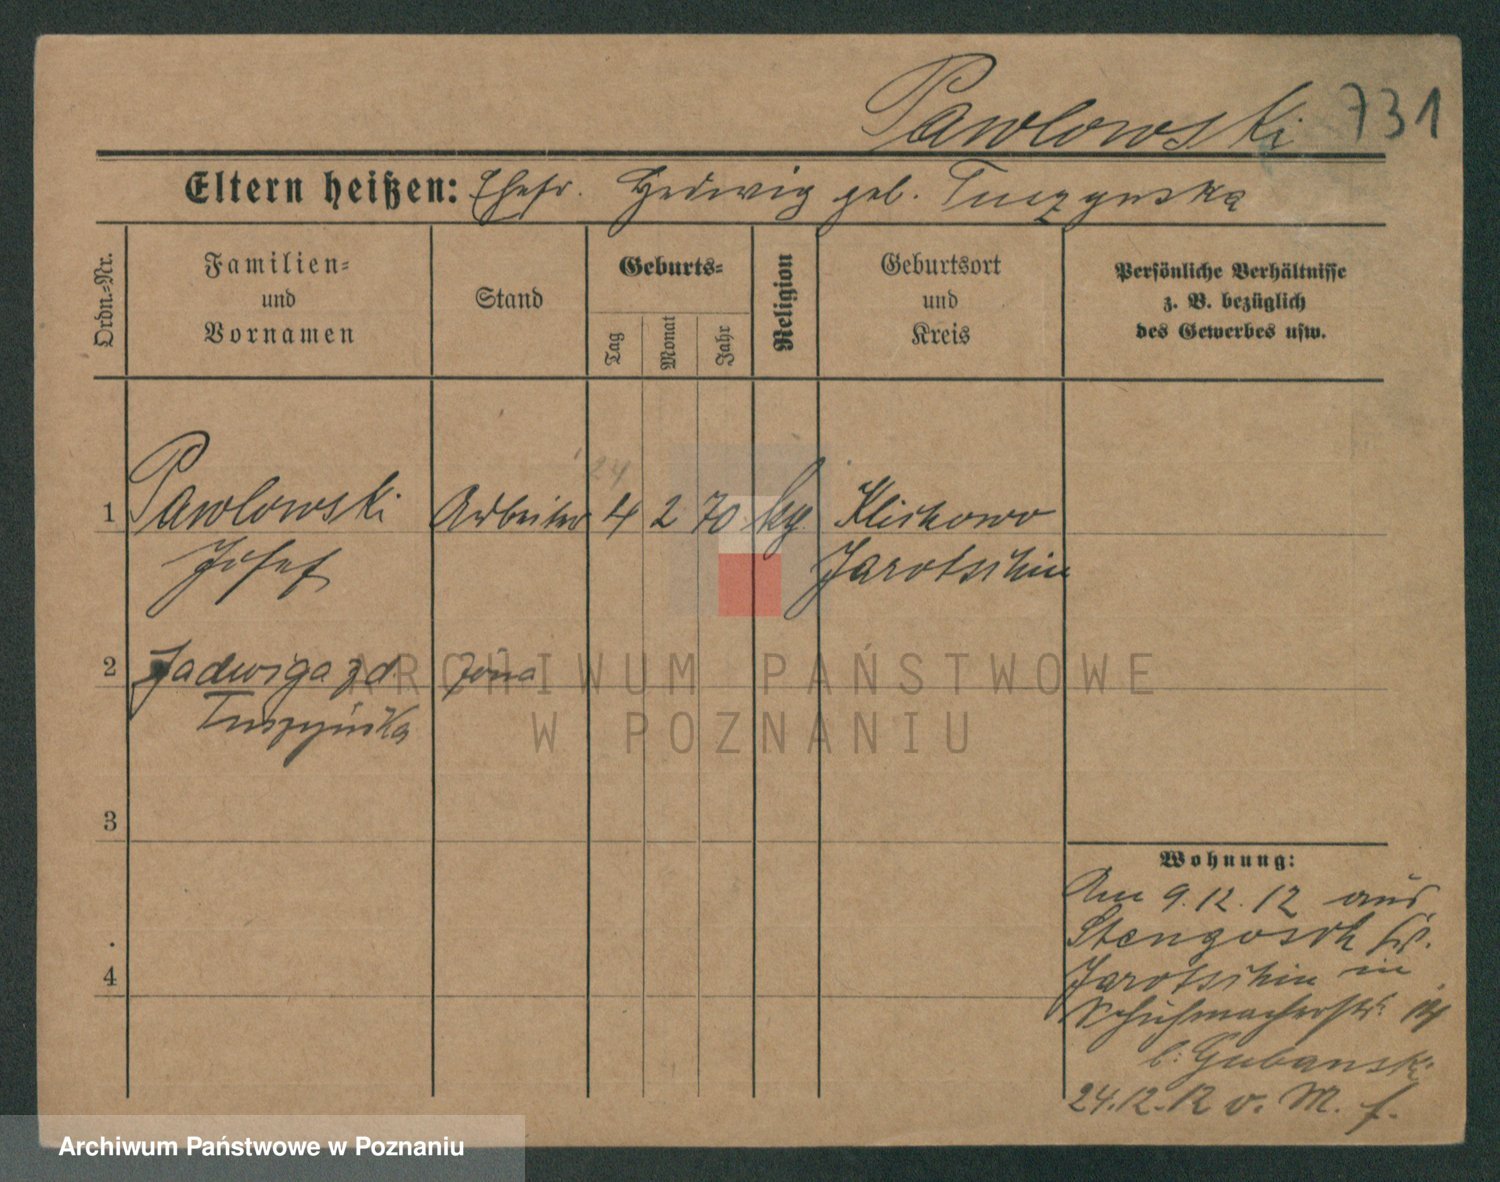 Pawlowski 731
Eltern heißen: Ehefr. Hedwig geb. Tuszynska
Ordn.-Nr.
Familien-
und
Vornamen
Stand
Geburts-
Tag
Monat
Jahr
Religion
Geburtsort
und
Kreis
Persönliche Verhältnisse
z. B. bezüglich
des Gewerbes usw.
24
1 Pawlowski Arbeiter 4 2 70 kg Klichowo
Josef Jarotschin
2 Jadwiga z d. żona
Tuszyńska
3
4
Wohnung:
Am 9.12.12 aus
Stengosch Kr.
Jarotschin in
Schuhmacherstr.
b. Gubanski
24.12.12 v. M. f.
ARCHIWUM PAŃSTWOWE
W POZNANIU
Archiwum Państwowe w Poznaniu